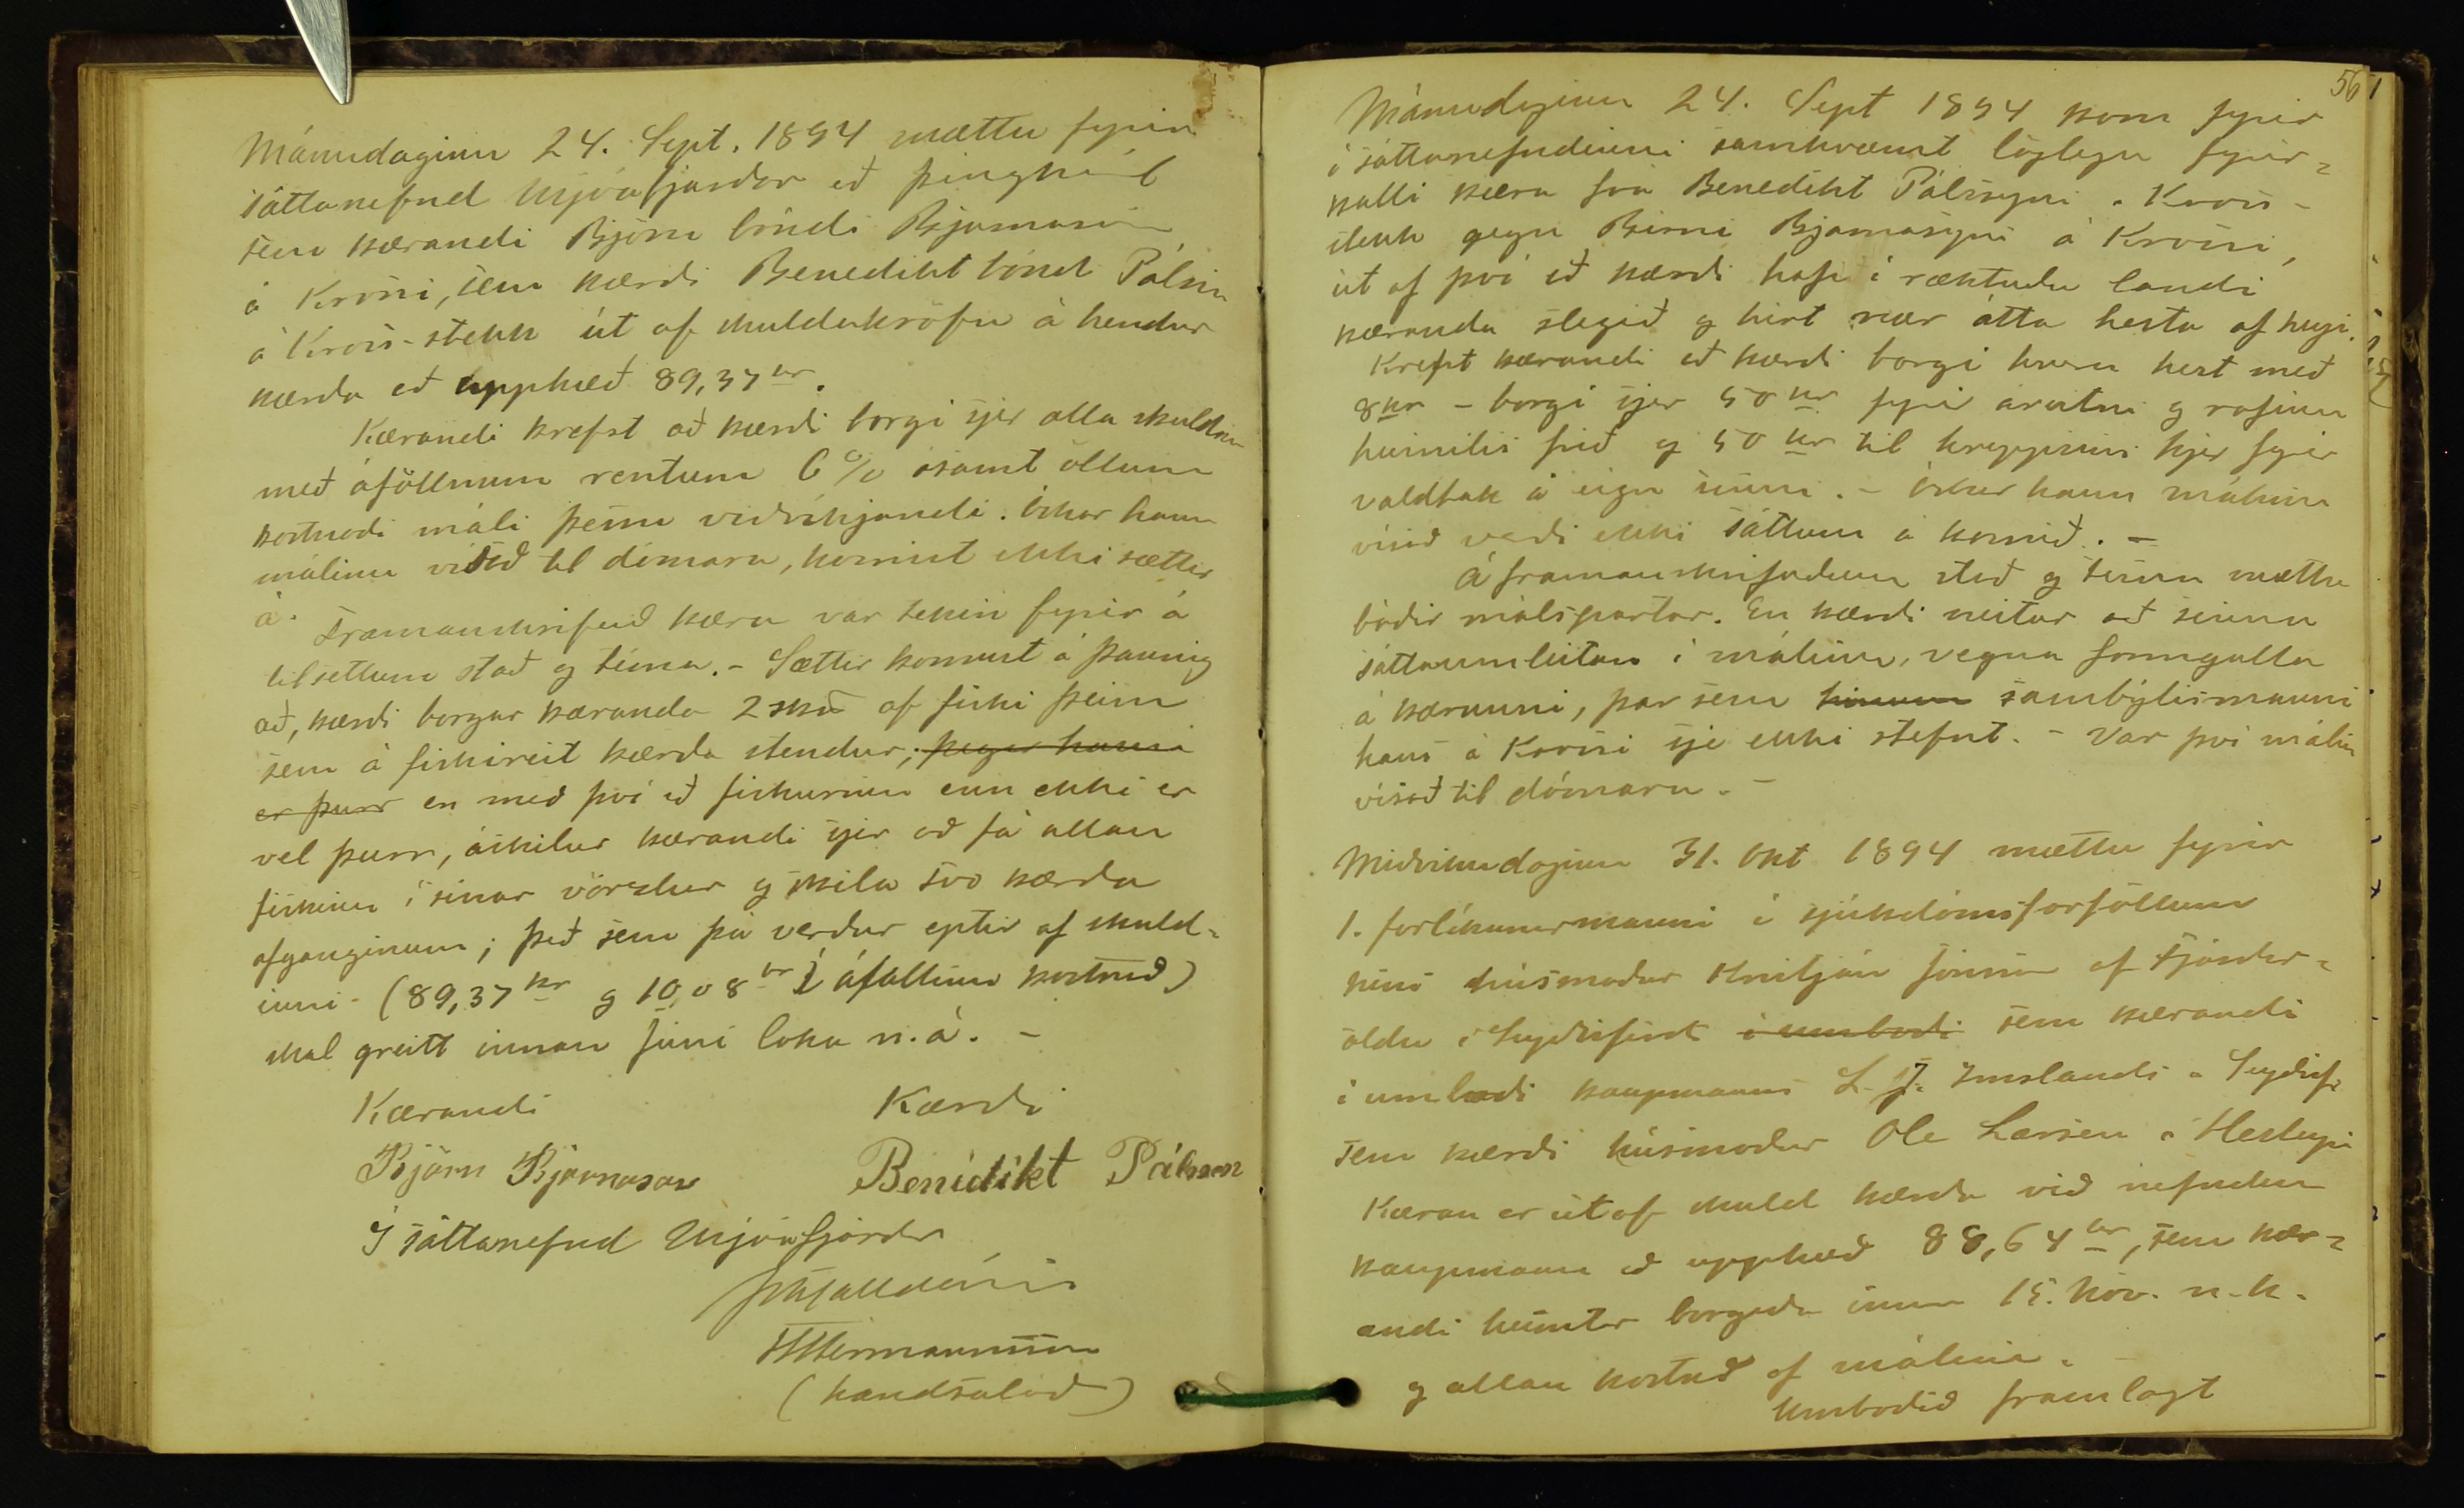 Mánudaginn 24. Sept. 1894 mættu fyrir
sáttanefnd Mjóafjarðar að þinghól
sem kærandi Björn bóndi Bjarnason
á Króki, sem kærði Benedikt bónd Pálsson
á Krossstekk út af skuldakröfu á hendur
kærða að upphæð 89,37 kr.
Kærandi krefst að kærði borgi sjer alla skuldina
með áföllnum rentum 6% ásamt öllum
kostnaði máli þessu viðvíkjandi. Óskar hann
málinu vísað til dómara, komist ekki sættir
á.
Framanskrifuð kæra var tekin fyrir á
tilsettum stað og tíma. - Sættir komust á þannig
að, kærði borgar kæranda 2 sk&#8468; af fiski þeim
sem á fiskireit kærða stendur; þegar hann
er þurr en með því að fiskurinn enn ekki er
vel þurr, áskilur kærandi sjer að fá allan
fiskinn í sínar vörslur og skila svo kærða
afganginum; það sem þá verður eptir af skuld-
inni (89,37 kr og 10,08 kr í áföllinn kostnað)
skal greitt innan Júní loka n.á. -
Kærandi Kærði
Björn Bjarnason Benidikt Pálsson
Í sáttanefnd Mjóafjarðar
HHermannsson
(handsalað)
56
Mánudaginn 24. Sept 1894 kom fyrir
í sáttanefndinni samkvæmt löglegu fyrir-
kalli kæra frá Benedikt Pálssyni á Kross-
stekk gegn Birni Bjarnasyni á Króki,
út af því að kærði hafi í ræktuðu landi
kæranda slegið og hirt nær átta hesta af heyi.
Krefst kærandi að kærði borgi hvern hest með
8 kr - borgi sjer 50 kr fyrir áreitni og rofinn
heimilis frið og 50 kr til hreppsins hjer fyrir
valdtak á eign sinni. - Óskar hann málinu
vísað verði ekki sáttum á komið. -
Á framanskrifuðum stað og tíma mættu
báðir málspartar. En kærði neitar að sinna
sáttaumleitan í málinu, vegna formgalla
á kærunni, þar sem hinum sambýlismanni
hans á Króki sje ekki stefnt. - Var því málinu
vísað til dómara. -
Miðvikudaginn 31. Okt 1894 mættu fyrir
1. forlíkunarmanni í sjúkdómsforföllum
hins húsmaður Kristján Jónsson af Fjarðar-
öldu í Seyðisfirði í umboði sem kærandi
í umboði kaupmanns L. J. Imslands á Seyðisf.
sem kærði húsmaður Ole Larsen á Hesteyri
Kæran er út af skuld kærða við nefndan
kaupmann að upphæð 88,64 kr, sem kær-
andi heimtar borgaða innan 15. Nóv. n.k.
og allan kostnað af málinu.
Umboðið framlagt